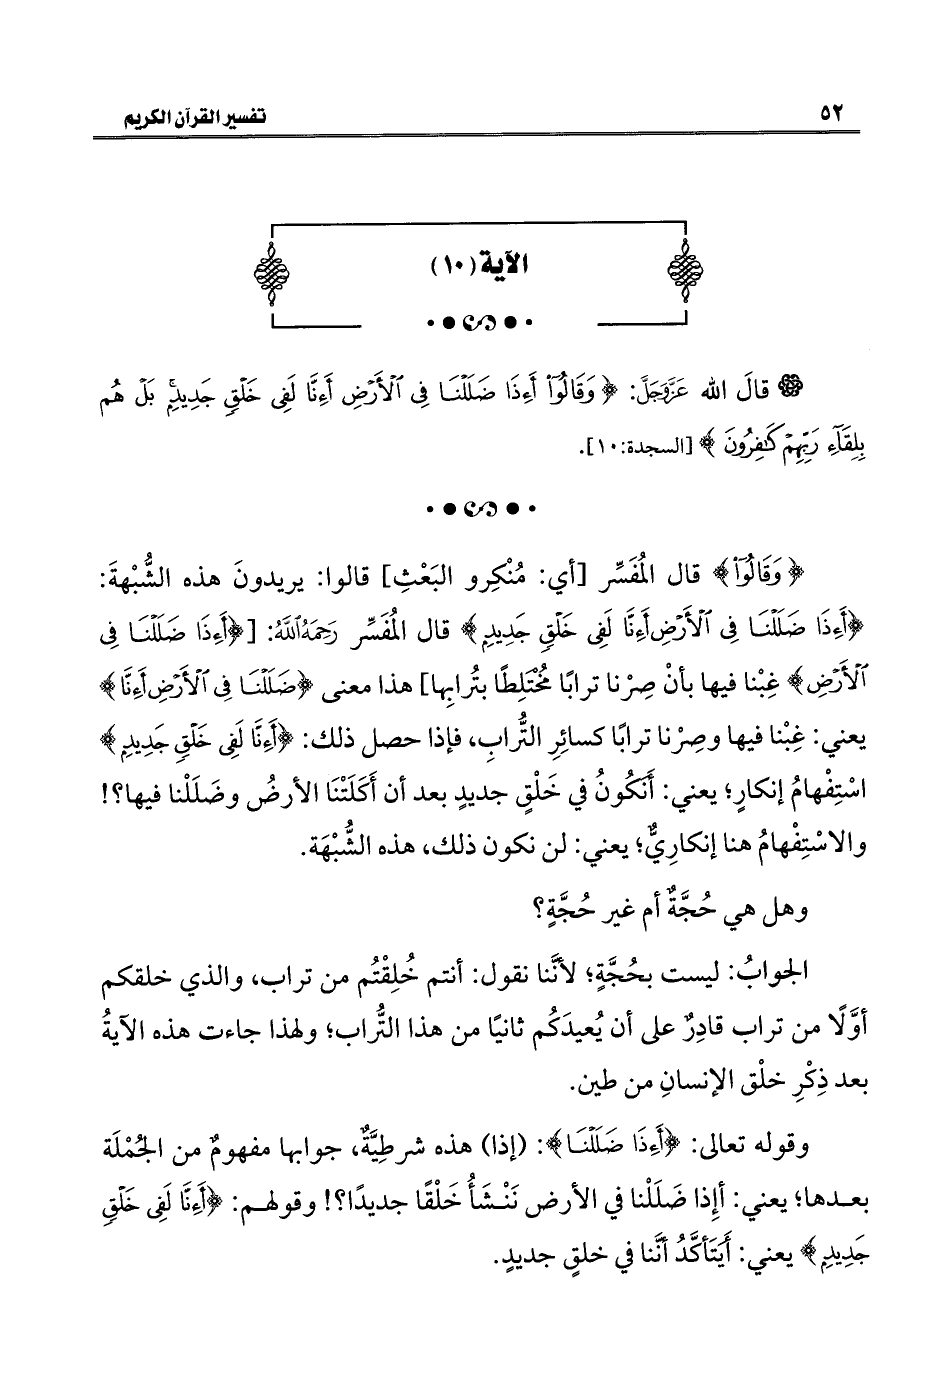 ٥٢ تفسير القرآن الكريم
الآية (١٠)
قالَ الله عَزَّوَجَلَّ: ﴿ وَقَالُوٓا۟ أَءِذَا ضَلَلْنَا فِى ٱلْأَرْضِ أَءِنَّا لَفِى خَلْقٍ جَدِيدٍۭ ۚ بَلْ هُم
بِلِقَآءِ رَبِّهِمْ كَـٰفِرُونَ ﴾ [السجدة:١٠].
﴿ وَقَالُوٓا۟ ﴾ قال المُفَسِّر [أي: مُنْكِرو البَعْثِ] قالوا: يريدونَ هذه الشُّبْهةَ:
﴿أَءِذَا ضَلَلْنَا فِى ٱلْأَرْضِ أَءِنَّا لَفِى خَلْقٍ جَدِيدٍ ﴾ قال المُفَسِّر رَحِمَهُ ٱللَّهُ: [﴿أَءِذَا ضَلَلْنَا فِى
ٱلْأَرْضِ﴾ غِبْنا فيها بأنْ صِرْنا ترابًا مُخْتَلِطًا بتُرابِها] هذا معنى ﴿ضَلَلْنَا فِى ٱلْأَرْضِ أَءِنَّا﴾
يعني: غِبْنا فيها وصِرْنا ترابًا كسائِرِ التُّرابِ، فإذا حصل ذلك: ﴿أَءِنَّا لَفِى خَلْقٍ جَدِيدٍ ﴾
اسْتِفْهامُ إنكارٍ؛ يعني: أَنَكُونُ في خَلْقٍ جديدٍ بعد أن أَكَلَتْنَا الأرضُ وضَلَلْنا فيها؟!
والاسْتِفْهامُ هنا إنكارِيٌّ؛ يعني: لن نكون ذلك، هذه الشُّبْهَة.
وهل هي حُجَّةٌ أم غير حُجَّةٍ؟
الجوابُ: ليست بحُجَّةٍ؛ لأنَّنا نقول: أنتم خُلِقْتُم من تراب، والذي خلقكم
أوَّلًا من تراب قادِرٌ على أن يُعيدَكُم ثانيًا من هذا التُّراب؛ ولهذا جاءت هذه الآيةُ
بعد ذِكْرِ خلْق الإنسانِ من طين.
وقوله تعالى: ﴿أَءِذَا ضَلَلْنَا﴾: (إذا) هذه شرطِيَّةٌ، جوابها مفهومٌ من الجُمْلَة
بعدها؛ يعني: أإِذا ضَلَلْنا في الأرض نَنْشَأُ خَلْقًا جديدًا؟! وقولهم: ﴿أَءِنَّا لَفِى خَلْقٍ
جَدِيدٍ ﴾ يعني: أَيَتَأكَّدُ أنَّنا في خلقٍ جديدٍ.